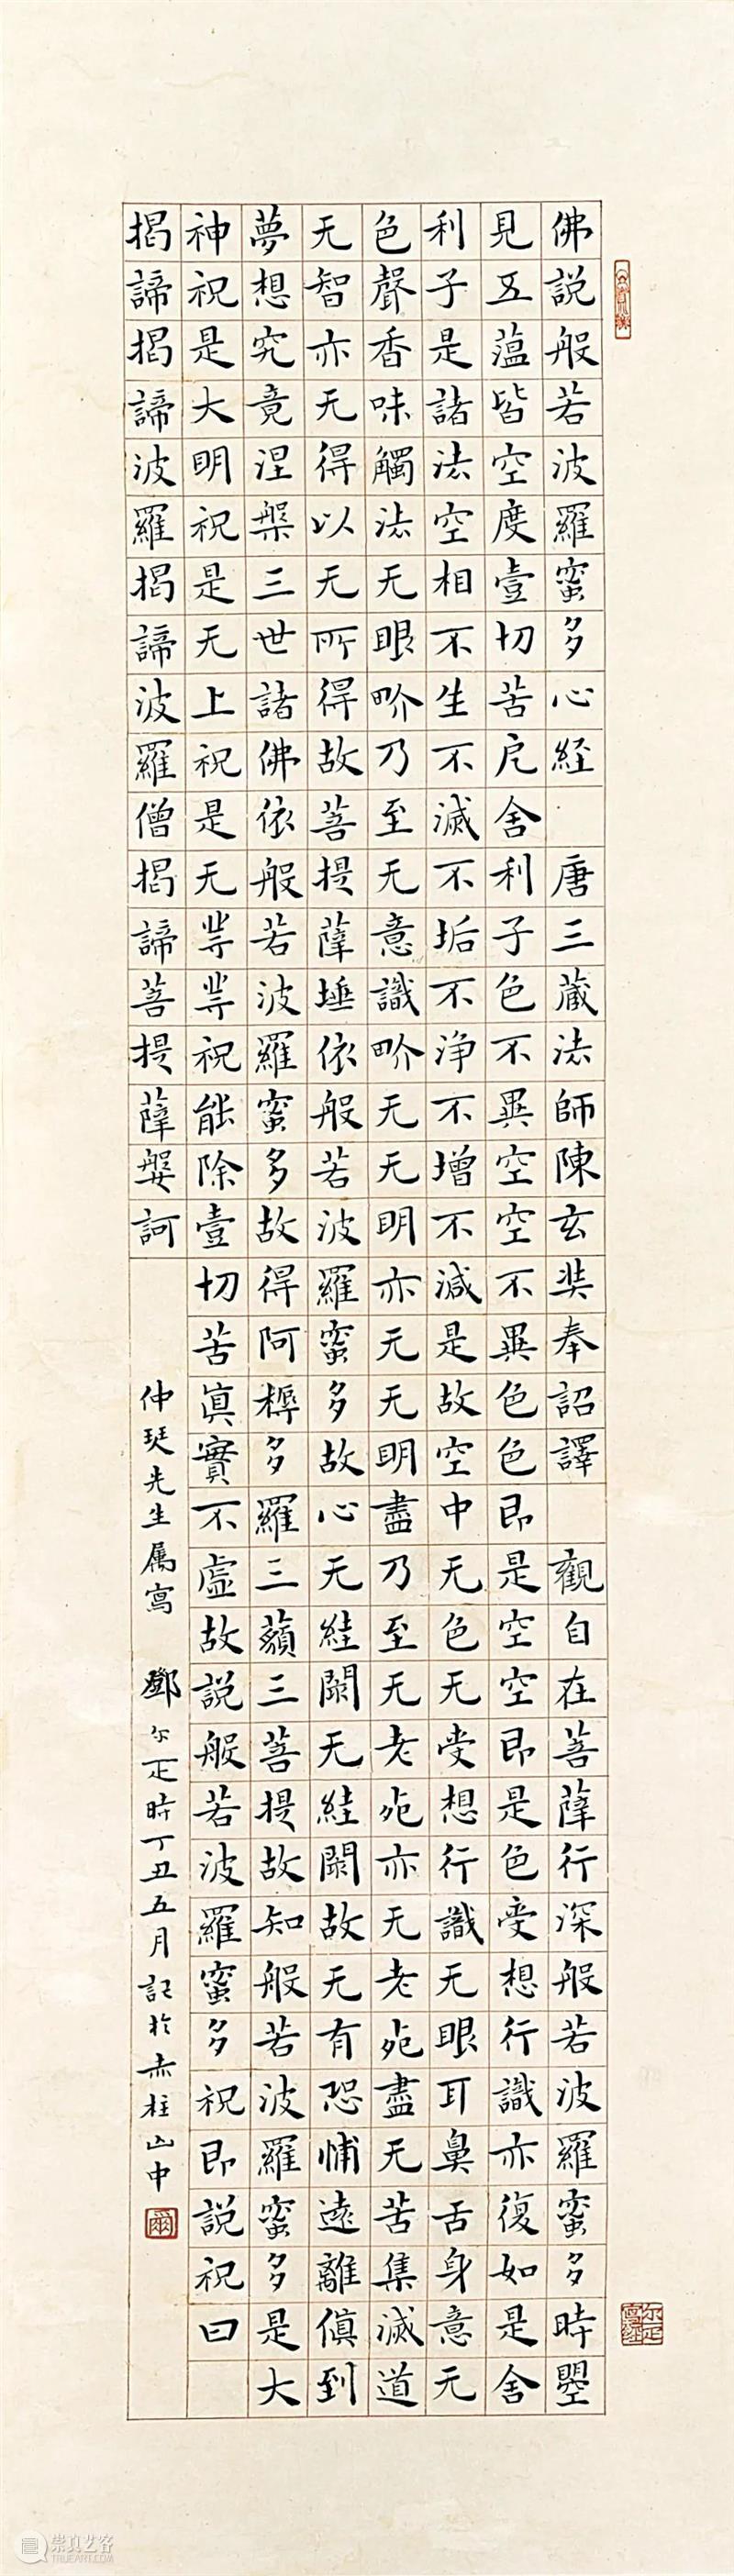 佛說般若波羅蜜多心經 唐三藏法師陳玄奘奉詔譯 觀自在菩薩行深般若波羅蜜多時曌
見五蕰皆空度壹切苦厄舍利子色不異空空不異色色即是空空即是色受想行識亦復如是舍
利子是諸法空相不生不滅不垢不淨不增不減是故空中无色无受想行識无眼耳鼻舌身意无
色聲香味觸法无眼界乃至无意識界无无明亦无无明盡乃至无老死亦无老死盡无苦集滅道
无智亦无得以无所得故菩提薩埵依般若波羅蜜多故心无絓閡无絓閡故无有恐怖遠離傎到
夢想究竟涅槃三世諸佛依般若波羅蜜多故得阿耨多羅三藐三菩提故知般若波羅蜜多是大
神祝是大明祝是无上祝是无等等祝能除壹切苦眞實不虛故說般若波羅蜜多祝即說祝曰
揭諦揭諦波羅揭諦波羅僧揭諦菩提薩婆訶
仲珽先生属寫 鄧尔疋時丁丑五月記於赤柱山中
爾
尔疋寫經
崇真艺客
TRUEART.COM